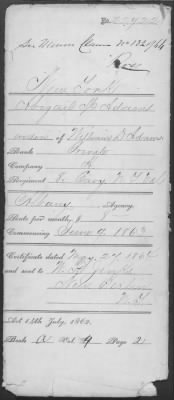 No. 27922
See Minor Claim No 132,164
New York
Abigail P. Adams
widow of Wm D Adams
Rank Private
Company A
Regiment 8. Cavy N. Y. Vols
Albany Agency.
Rate per month, 8
Commencing June 9 1863
Certificate dated May. 27. 1864
and sent to
N.Y.
Act 14th July, 1862.
Book A Vol. 4 Page 2